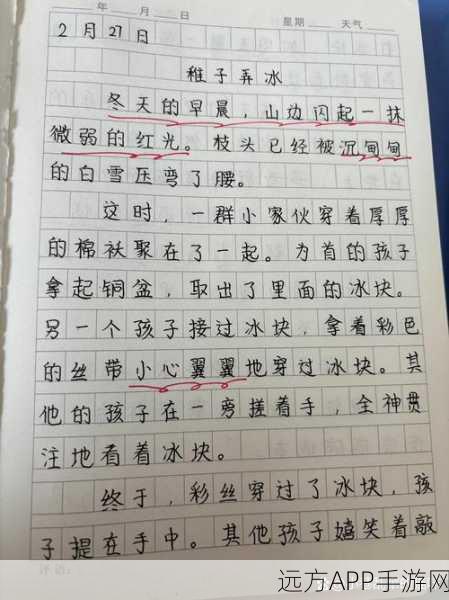 年 月 日 星期 天气
2月27日
稚子弄冰
冬天的早晨，山边闪起一抹
微弱的红光。枝头已经被沉甸甸
的白雪压弯了腰。
这时，一群小家伙穿着厚厚
的棉袄聚在了一起。为首的孩子
拿起铜盆，取出了里面的冰块。
另一个孩子接过冰块，拿着彩色
的丝带小心翼翼地穿过冰块。其
他的孩子在一旁搓着手，全神贯
注地看着冰块。
终于，彩丝穿过了冰块，孩
子提在手中。其他孩子嬉笑着敲
评语：
远方APP手游网